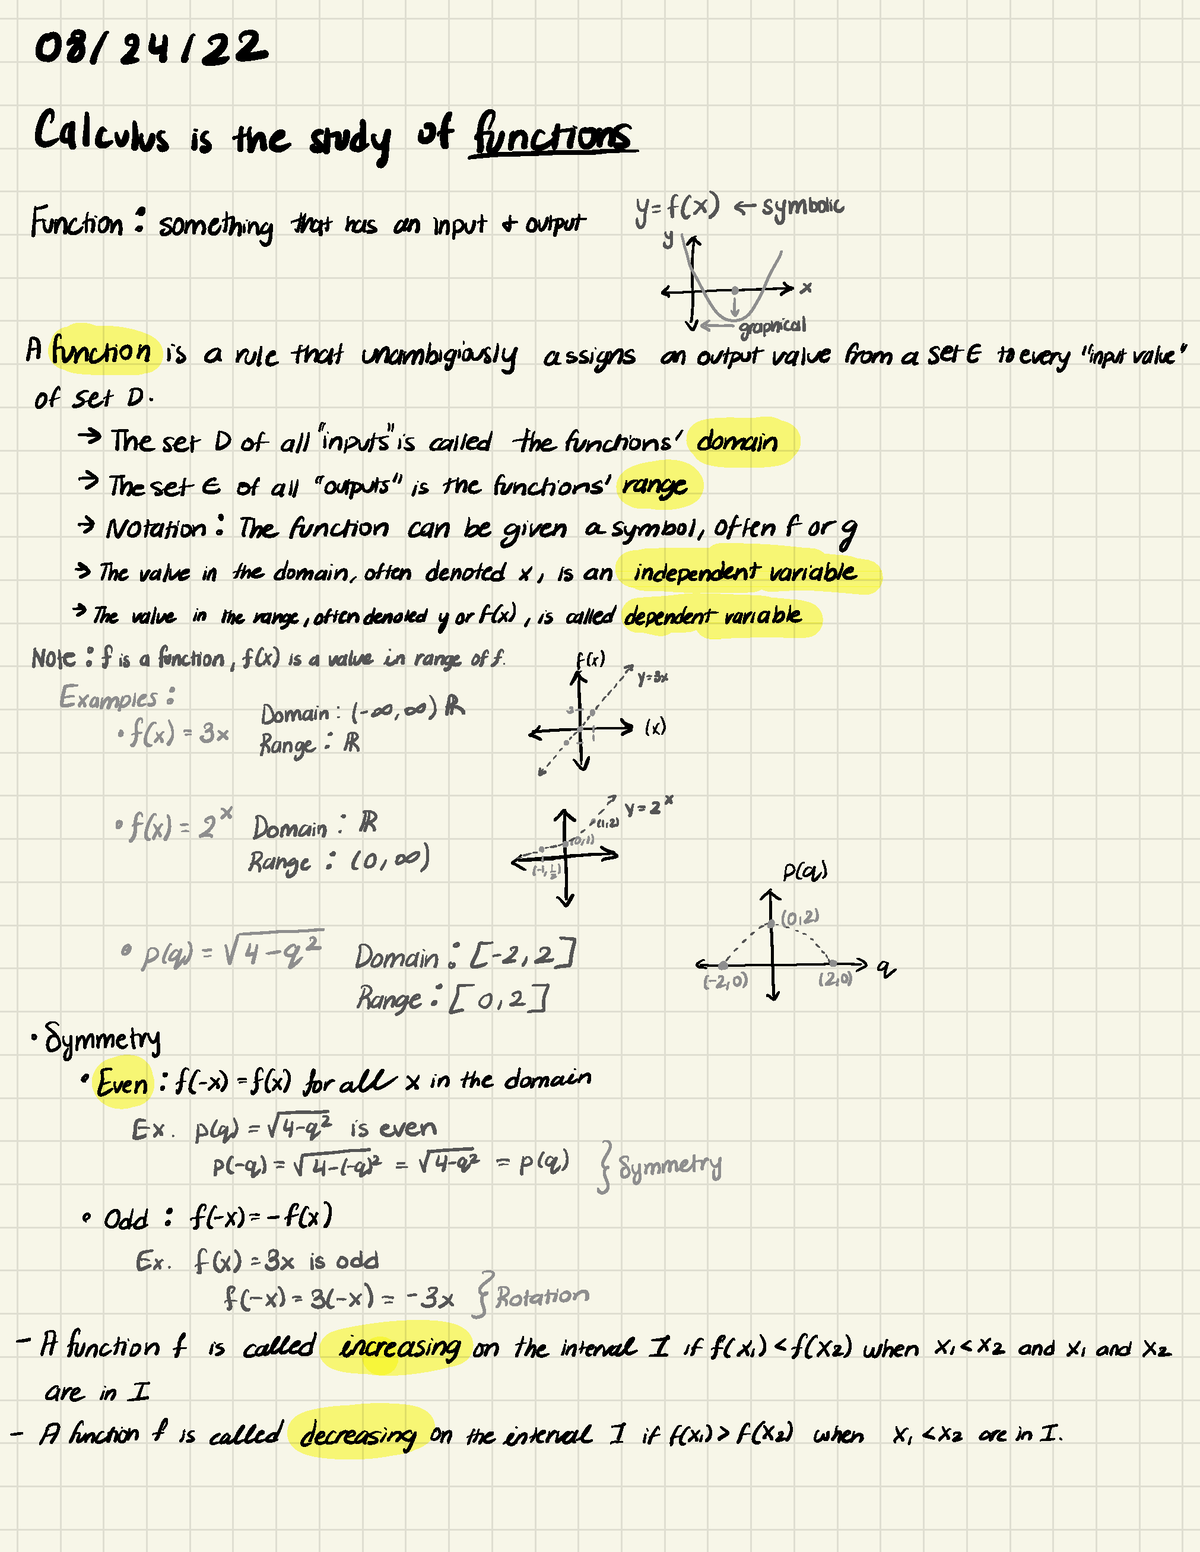 08/24/22
Calculus is the study of functions
Function: something that has an input & output
y=f(x) ← symbolic
y
x
graphical
A function is a rule that unambigiously assigns an output value from a set E to every "input value"
of set D.
→ The set D of all "inputs" is called the functions' domain
→ The set E of all "outputs" is the functions' range
→ Notation: The function can be given a symbol, often f or g
→ The value in the domain, often denoted x, is an independent variable
→ The value in the range, often denoted y or f(x), is called dependent variable
Note: f is a function, f(x) is a value in range of f.
Examples:
• f(x) = 3x
Domain: (-∞,∞) ℝ
Range: ℝ
f(x)
y=3x
(x)
3
1
• f(x) = 2^x
Domain: ℝ
Range: (0,∞)
y=2^x
(1,2)
(0,1)
(-1,½)
• p(q) = √4-q²
Domain: [-2,2]
Range: [0,2]
p(q)
(0,2)
q
(-2,0)
(2,0)
• Symmetry
• Even: f(-x) = f(x) for all x in the domain
Ex. p(q) = √4-q² is even
p(-q) = √4-(-q)² = √4-q² = p(q) } Symmetry
• Odd: f(-x) = -f(x)
Ex. f(x) = 3x is odd
f(-x) = 3(-x) = -3x } Rotation
- A function f is called increasing on the interval I if f(x₁) < f(x₂) when x₁ < x₂ and x₁ and x₂
are in I
- A function f is called decreasing on the interval I if f(x₁) > f(x₂) when x₁ < x₂ are in I.